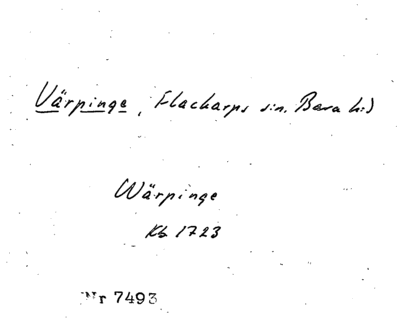 Värpinge, Flackarps sn. Bara hd
Wärpinge
Kb 1723
Nr 7493